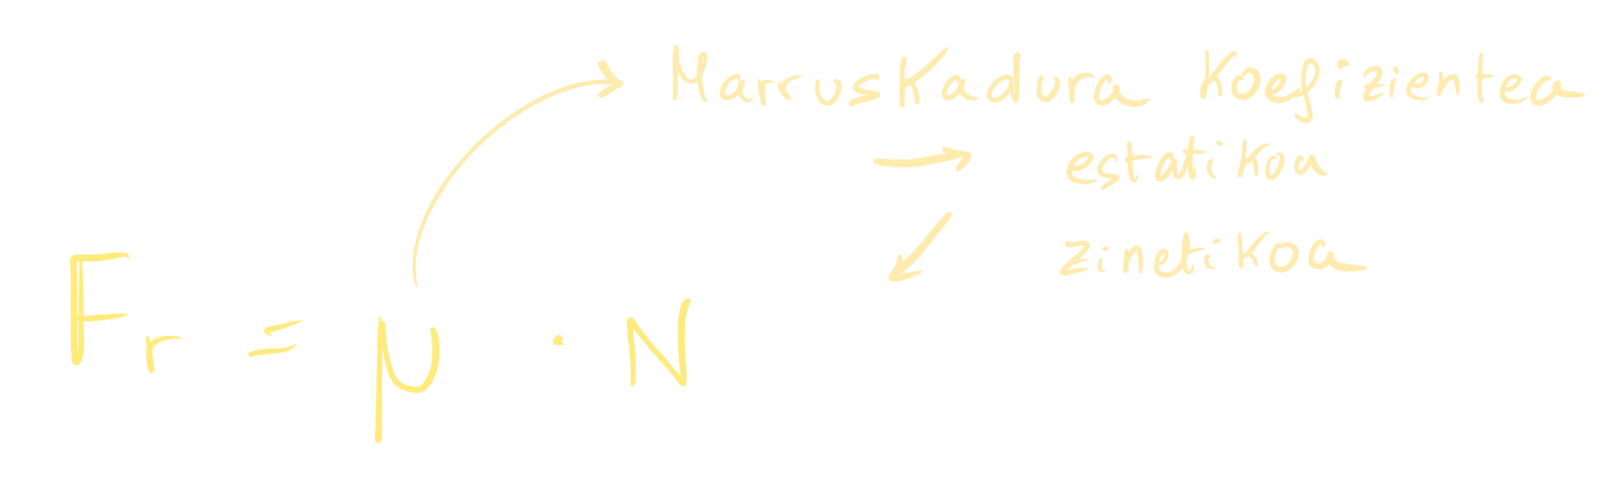 Marruskadura koefizientea
estatikoa
zinetikoa
Fr = μ · N